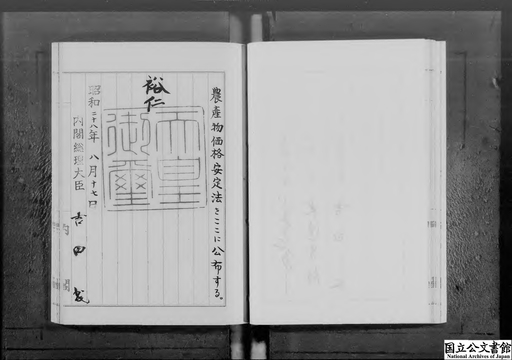 農産物価格安定法をここに公布する。
裕仁
天皇御璽
昭和二十八年八月十七日
内閣総理大臣 吉田茂
国立公文書館
National Archives of Japan